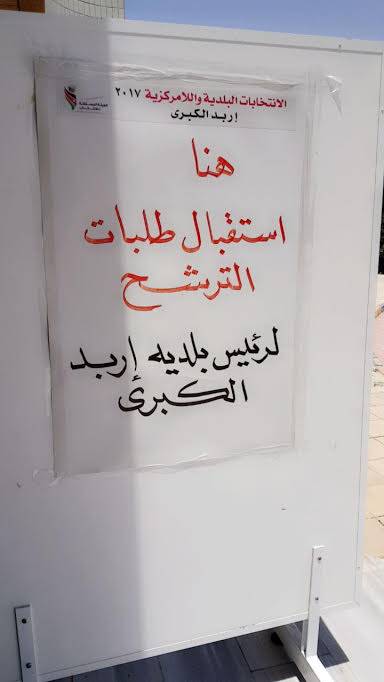 الانتخابات البلدية واللامركزية ٢٠١٧
إربد الكبرى
هنا
استقبال طلبات
الترشح
لرئيس بلديه إربد
الكبرى